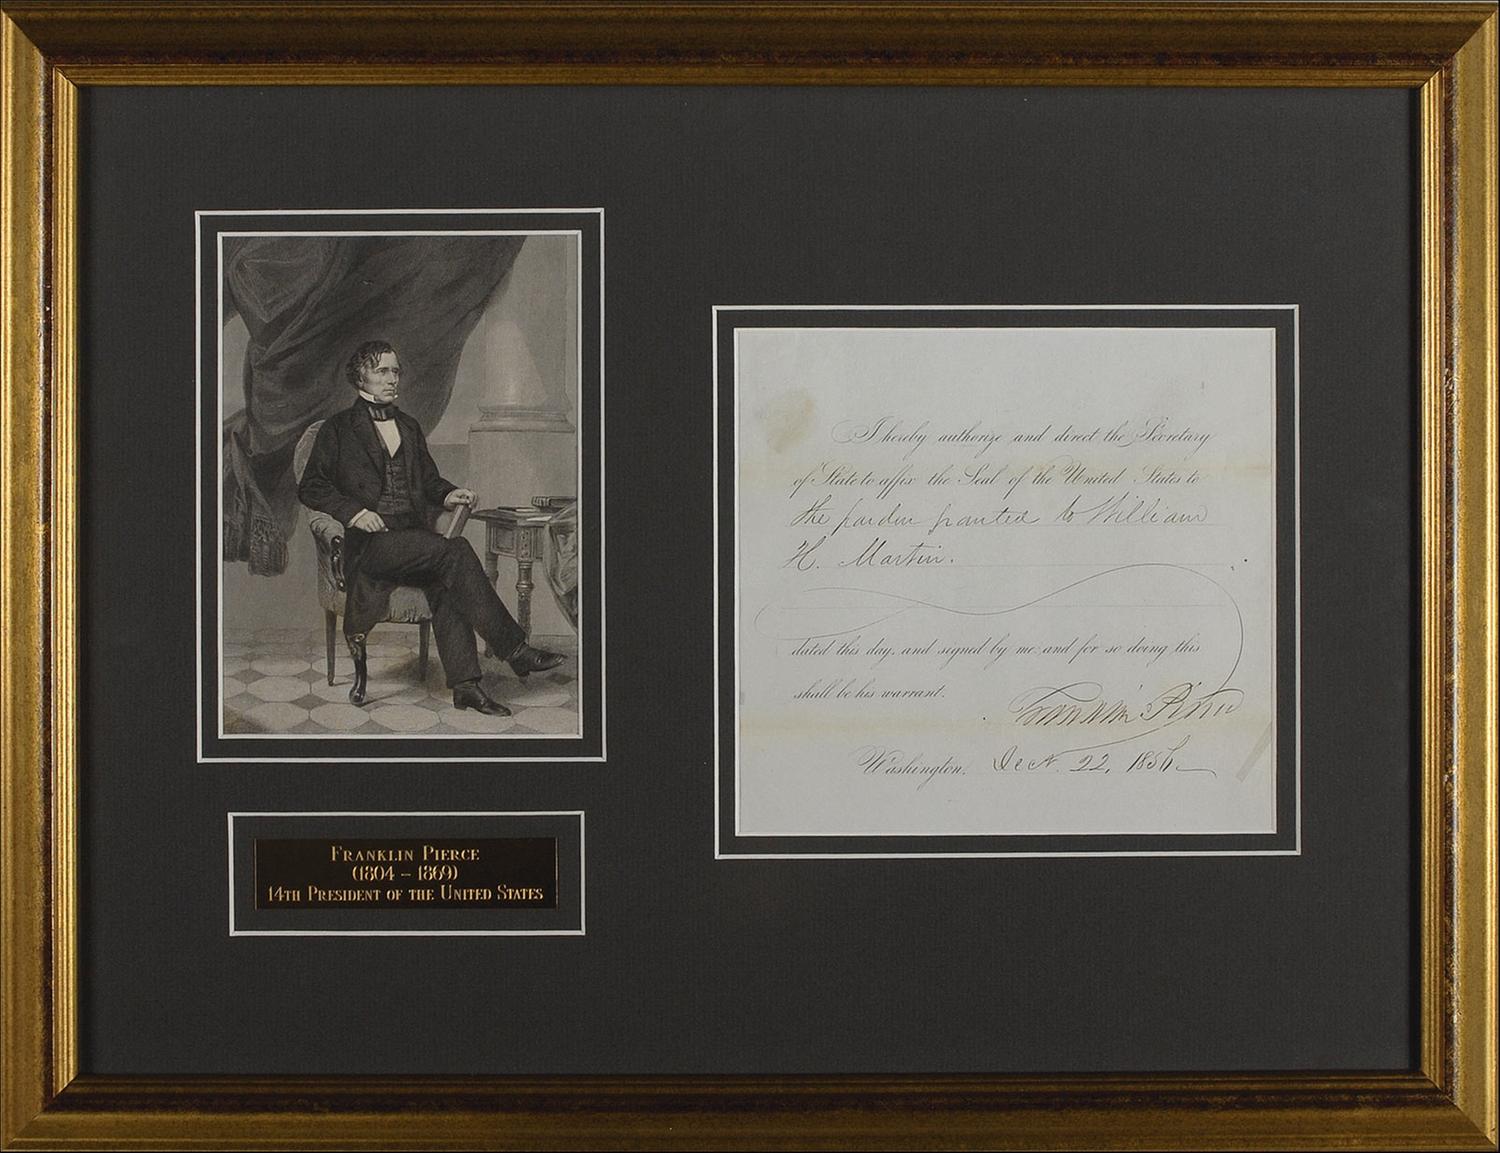 I hereby authorize and direct the Secretary
of State to affix the Seal of the United States to
the pardon granted to William
H. Martin.
dated this day, and signed by me: and for so doing this
shall be his warrant.
Franklin Pierce
Washington, Decr. 22, 1856.
FRANKLIN PIERCE
(1804 – 1869)
14TH PRESIDENT OF THE UNITED STATES